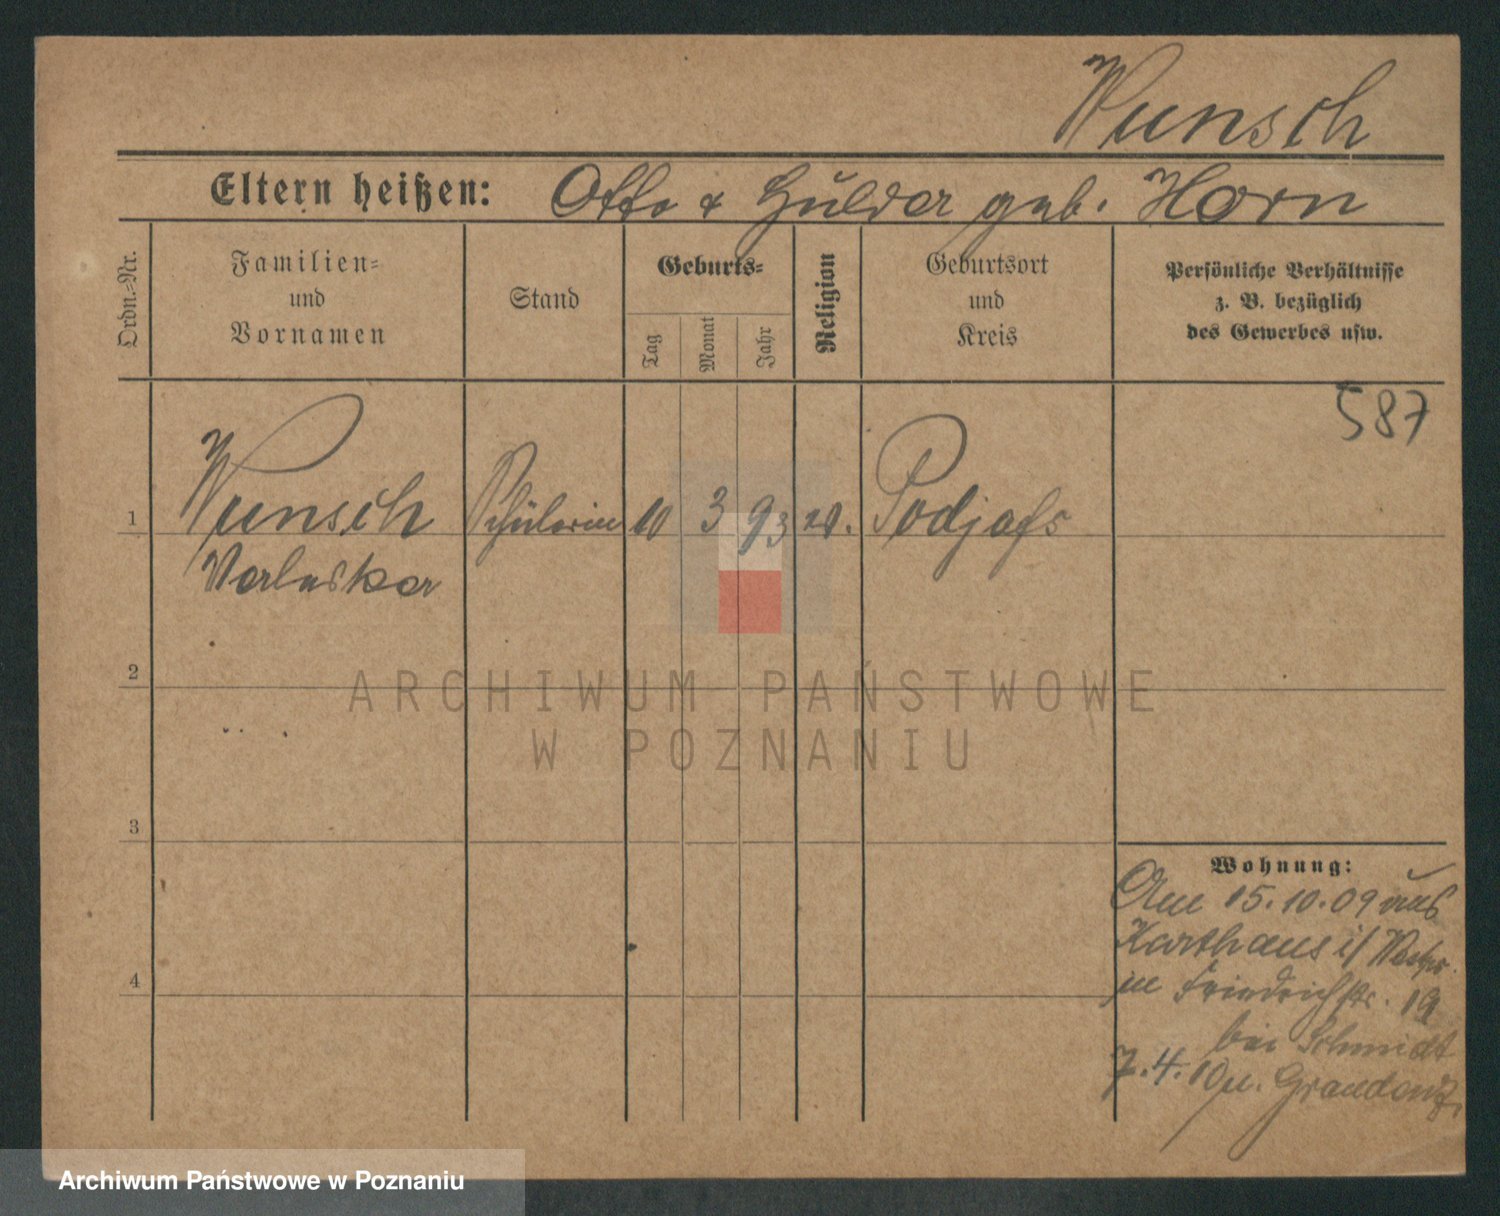 Wunsch
Eltern heißen: Otto & Hulda geb. Horn
Ordn.=Nr.
Familien=
und
Vornamen
Stand
Geburts=
Tag
Monat
Jahr
Religion
Geburtsort
und
Kreis
Persönliche Verhältnisse
z. B. bezüglich
des Gewerbes usw.
587
1 Wunsch Schülerin 10 3 93 ev.
2
3
4
Wohnung:
Am 15.10.09 aus
Karthaus i/ Westpr.
in Friedrichstr. 19
bei Schmidt
7.4.10 n. Graudenz.
ARCHIWUM PAŃSTWOWE
W POZNANIU
Archiwum Państwowe w Poznaniu